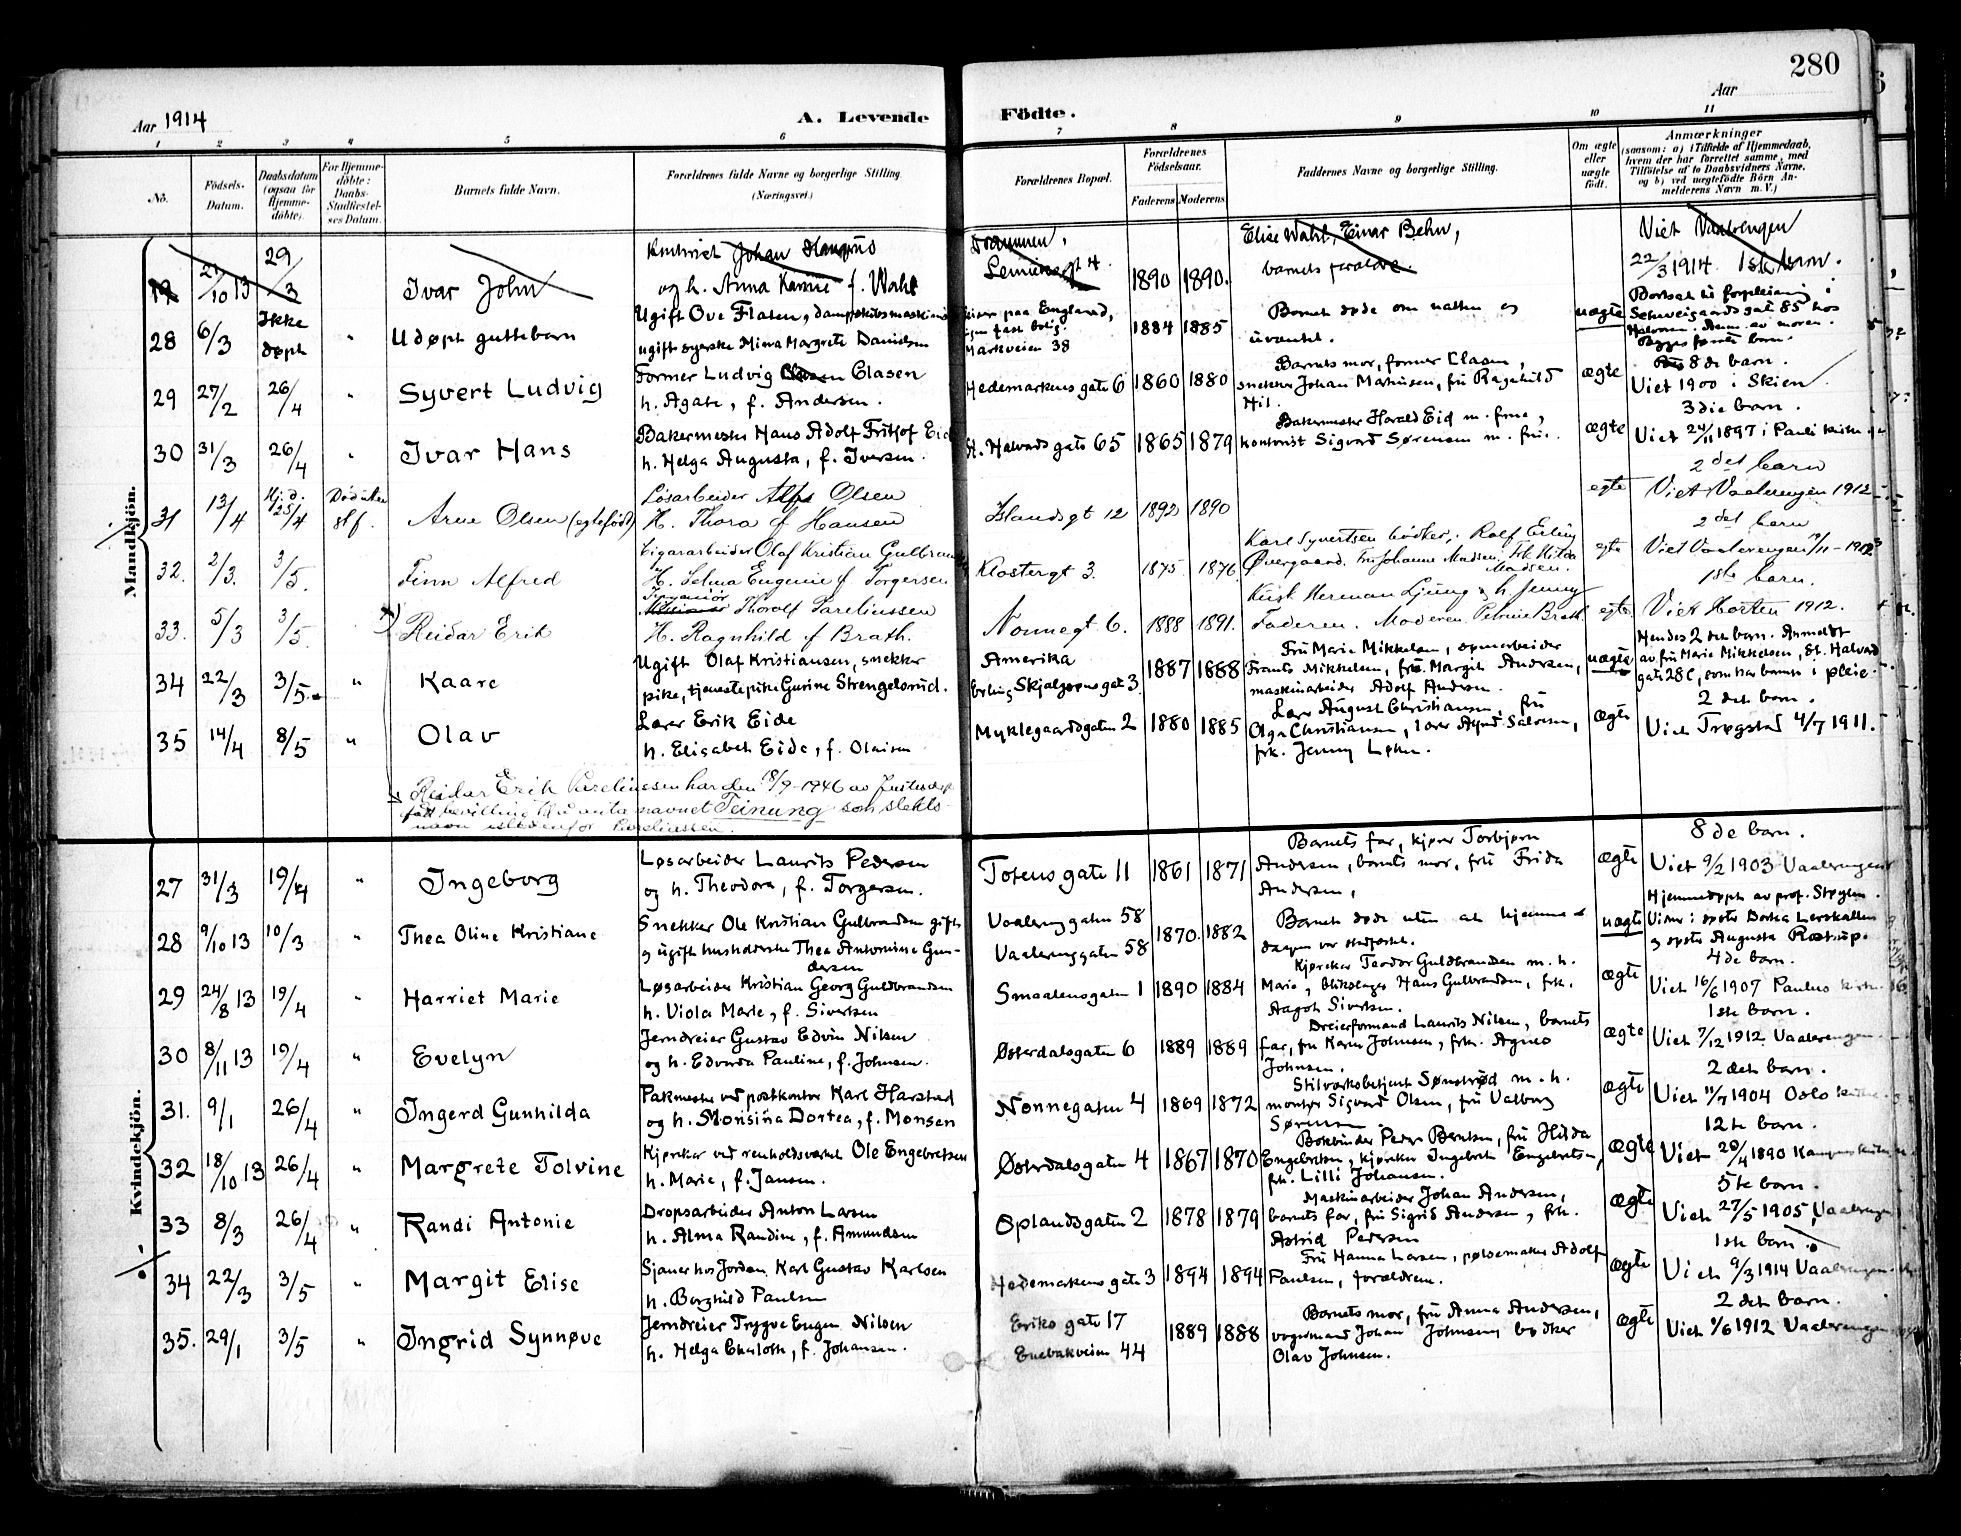 280
Aar 1914
A. Levende Födte.
Aar
1 2 3 4 5 6 7 8 9 10 11
No.
Födsels-Datum.
Daabsdatum (ogsaa for Hjemme-döbte).
For Hjemme-döbte: Daabs-Stadfæstel-ses Datum.
Barnets fulde Navn.
Forældrenes fulde Navne og borgerlige Stilling. (Næringsvei.)
Forældrenes Bopæl.
Forældrenes Födselsaar.
Faderens Moderens
Faddernes Navne og borgerlige Stilling.
Om ægte eller uægte födt.
Anmærkninger
(saasom: a) i Tilfælde af Hjemmedaab,
hvem der har forrettet samme, med
Tilföielse af to Daabsvidners Navne,
og b) ved uægtefödte Börn An-
melderens Navn m. V.)
Mandkjön.
21/10 13 29/3 Ivar John
og h. Anna f. Wahl
1890 1890.
Elise Wahl, Einar Behn,
barnets forældre.
Viet Vaalerengen
22/3 1914 1ste barn.
28 6/3 Ikke døpt " Udøpt guttebarn
Ugift Ove Flaten,
ugift syerske Minna Margrete Danielsen
Markveien 38
1884 1885
Barnet døde om natten
uventet.
uægte
Schweigaards gat 85 hos
29 27/2 26/4 " Syvert Ludvig
Former Ludvig Clasen
h. Agate, f. Andersen.
Hedemarkens gate 6 1860 1880
Barnets mor, former Clasen,
snekker Johan Martinsen, fru Ragnhild
ægte
8de barn.
Viet 1900 i Skien
30 31/3 26/4 " Ivar Hans
Bakermester Hans Adolf Fritjof Eid
h. Helga Augusta, f. Iversen.
St. Halvards gate 65 1865 1879
Bakermester Harald Eid m. frue,
kontorist Sigvard Sørensen m. frue.
ægte
3die barn.
Viet 24/11 1897 i Pauli kirke
31 13/4 Hj. d. 25/4 Død uten stf.
Arne Olsen (egtefødt)
Løsarbeider Olsen
H. Thora f Hansen
Islandsgt 12 1892 1890
egte
2det barn
Viet Vaalerengen 1912
32. 2/3. 3/5. Finn Alfred
Cigararbeider Olaf Kristian Gulbrandsen
H. Selma Eugenie f Torgersen
Klostergt 3. 1875 1876
Karl Syvertsen bødker, Rolf Erling
Øvergaard. Fru Johanne Madsen, Frk Hilda
Madsen.
egte
2det barn
Viet Vaalerengen
33. 5/3 3/5. Reidar Erik
Ingeniør Thorolf Pareliussen
H. Ragnhild f Brath.
Nonnegt 6. 1888 1891.
Herman Ljung & h. Jenny
Faderen. Moderen. Petrine Brath
egte
1ste barn.
Viet Horten 1912.
34 22/3 3/5. " Kaare
Ugift Olaf Kristiansen, snekker
pike, tjenestepike Gurine Strengelsrud.
Amerika
Skjalgsøns gat 3. 1887 1888
Fru Marie Mikkelsen,
Frants Mikkelsen, fru Margit Andersen,
maskinarbeider Adolf Andersen.
uægte
Hendes 2det barn. Anmeldt
av fru Marie Mikkelsen, St. Halvards
gate 28C, som har barnet i pleie.
35 14/4 8/5 " Olav
Lærer Erik Eide
h. Elisabeth Eide, f. Olaisen
Myklegaardsgaten 2 1880 1885
Lærer August Christiansen, fru
Olga Christiansen, lærer Salvesen,
frk. Jenny
ægte
2 det barn.
Viet Trøgstad 4/7 1911.
Reidar Erik Parelliussen har den 18/9-1946 av Justisdep
fått bevilling til å anta navnet Teinung som slekts-
navn istedenfor Parelliussen.
Kvindekjön.
27 31/3 19/4 " Ingeborg
Løsarbeider Laurits Pedersen
og h. Theodora, f. Torgersen.
Totens gate 11 1861 1871
Barnets far, kjører Torbjørn
Andersen, barnets mor, frk Frida
Andersen,
ægte
8de barn.
Viet 9/2 1903 Vaalerengen
28 9/10 13 10/3 " Thea Oline Kristiane
Snekker Ole Kristian Gulbrandsen gift
og ugift husholderske Thea Antonine Gun-
dersen
Vaalerenggaten 58
Vaalerenggaten 58
1870. 1882
Barnet døde uten at hjemme-
daapen var stadfæstet.
uægte
Hjemmedøpt av prof.
og søster Augusta
29 24/8 13 19/4 " Harriet Marie
Løsarbeider Kristian Georg Guldbrandsen
h. Viola Marie, f. Sivertsen
Smaalensgaten 1 1890 1884
Kjørekar Teodor Guldbrandsen m. h.
Marie, blikslager Hans Gulbrandsen, frk.
Aagot Sivertsen.
ægte
4de barn.
Viet 16/6 1907 Paulus kirke
30 8/11 13 19/4 " Evelyn
Jerndreier Gustav Edvin Nilsen
og h. Edvarda Pauline, f. Johnsen.
Østerdalsgaten 6 1889 1889
Dreierformand Laurits Nilsen, barnets
far, fru Karen Johnsen, frk. Agnes
Johnsen.
ægte
1ste barn.
Viet 7/12 1912 Vaalerengen
31. 9/1 26/4 " Ingerd Gunhilda
Pakmester ved postkontor Karl Harstad
og h. Monsina Dortea, f. Monsen
Nonnegaten 4 1869 1872
Stilverksbetjent Sønsterød m. h.
montør Sigvard Olsen, fru Valborg
Sørensen
ægte
2det barn.
Viet 11/7 1904 Oslo kirke
32 18/10 13 26/4 " Margrete Tolvine
Kjørekar ved renholdsverket Ole Engebretsen
h. Marie, f. Jansen.
Østerdalsgaten 4 1867 1870
Bokbinder Peder Berntsen, fru Hilda
Engebretsen, kjørekar Ingebrett Engebretsen,
frk. Lilli Johansen.
ægte
12te barn.
Viet 20/4 1890
33 8/3 26/4 " Randi Antonie
Dropsarbeider Anton Larsen
h. Alma Randine, f. Amundsen
Oplandsgaten 2 1878 1879
Maskinarbeider Johan Andersen,
barnets far, fru Sigrid Andersen, frk.
Astrid Pedersen
ægte
5te barn.
Viet 27/5 1905, Vaalerengen
34 22/3 3/5 " Margit Elise
Sjauer hos Jordan Karl Gustav Karlsen
h. Borghild Paulsen
Hedemarkens gate 3 1894 1894
Fru Hanna Larsen, pølsemaker Adolf
Paulsen, forældrene.
ægte
1ste barn.
Viet 9/3 1914 Vaalerengen
35. 29/1 3/5 " Ingrid Synnøve
Jerndreier Trygve Eugen Nilsen
h. Helga Charlotte, f. Johansen.
Eriks gate 17
Enebakveien 44
1889 1888
Barnets mor, fru Anna Andersen,
vognmand Johan Johnsen, bødker
Olav Johnsen.
ægte
2det barn.
Viet 1/6 1912 Vaalerengen